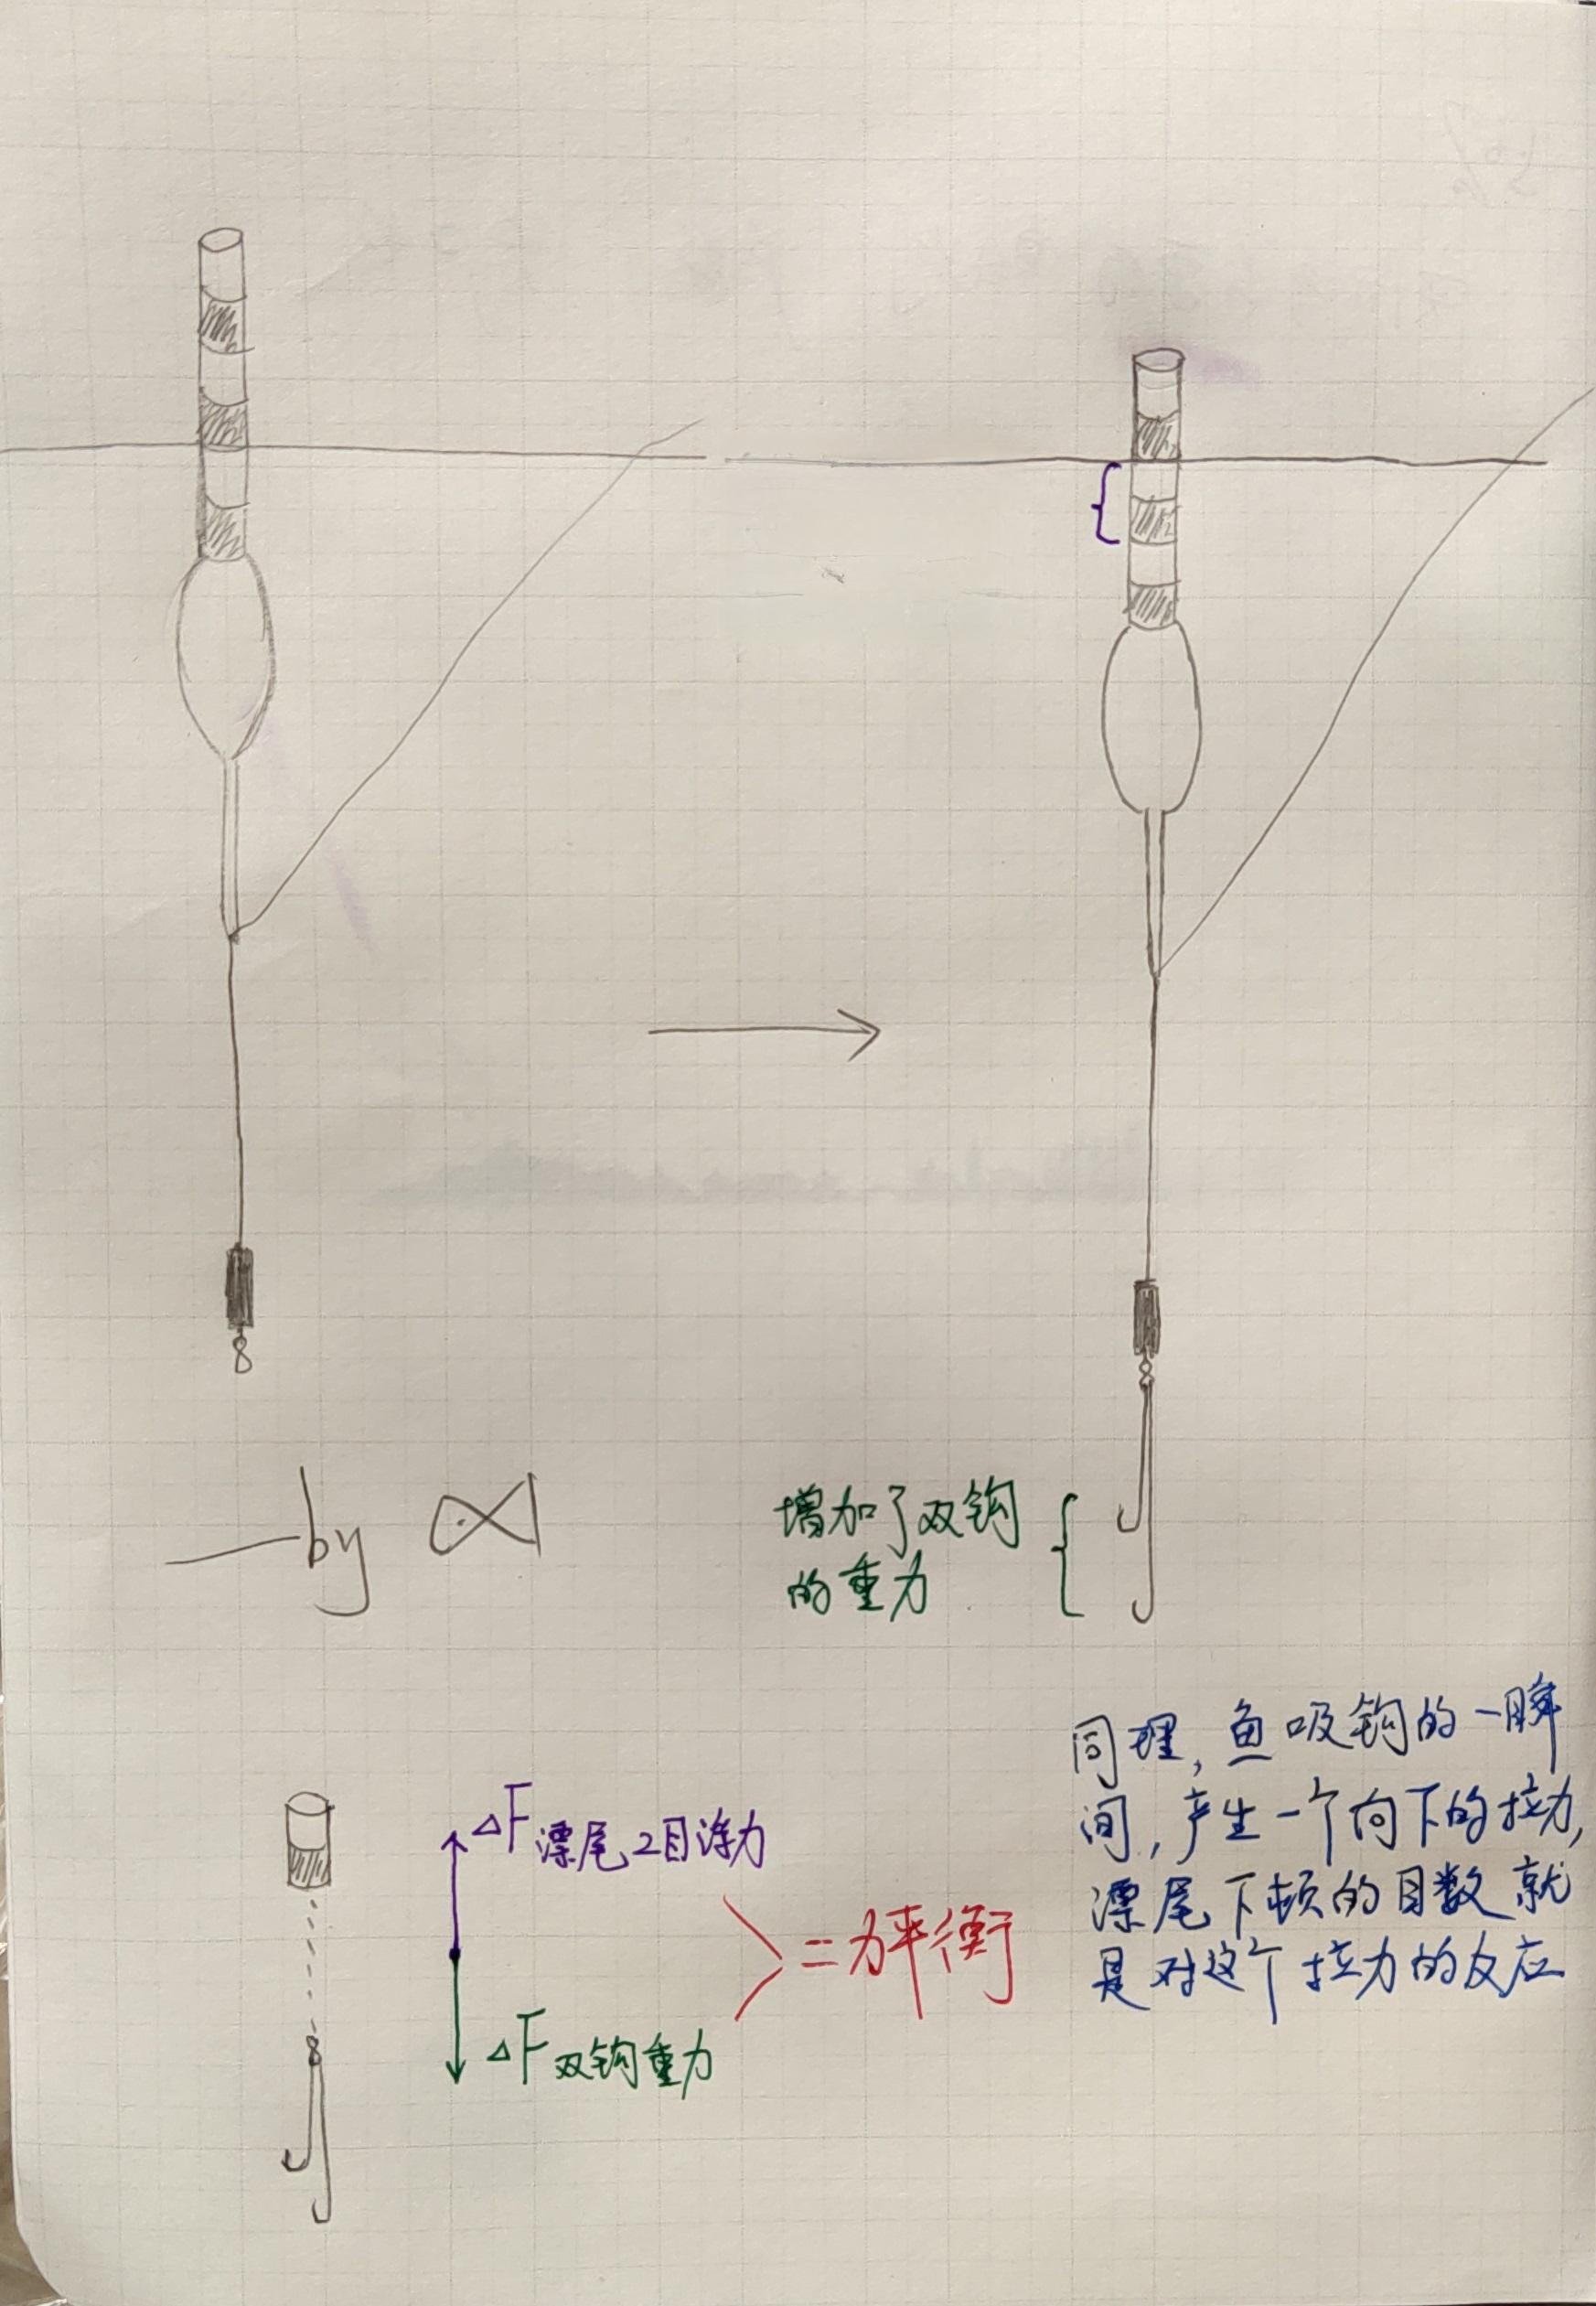 —by
增加了双钩
的重力
ΔF漂尾2目浮力
=力平衡
ΔF双钩重力
同理,鱼吸钩的一瞬
间,产生一个向下的拉力,
漂尾下顿的目数就
是对这个拉力的反应